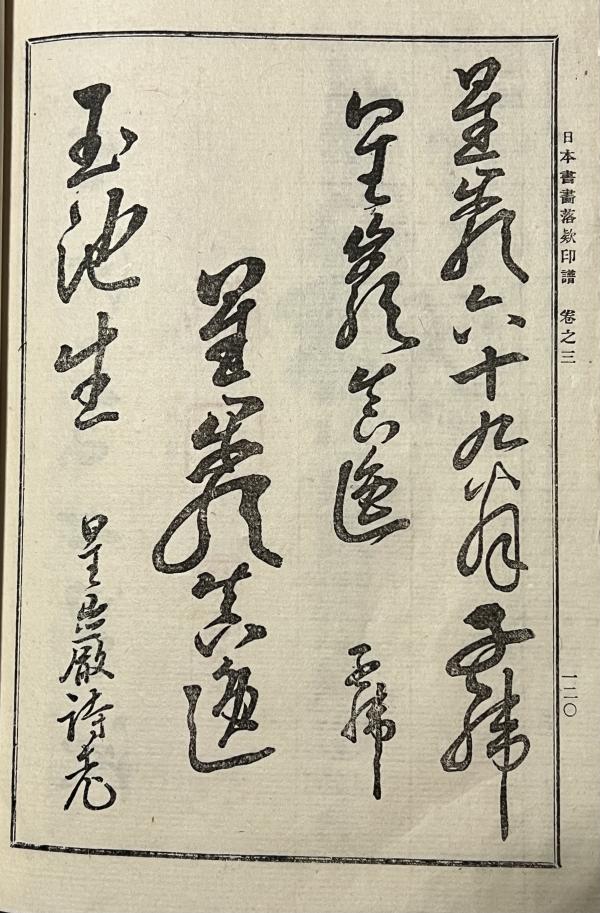 日本書畫落欵印譜 卷之三 一二〇
星巖六十九翁孟緯
星巖真逸 孟緯
星巖真逸
玉池生
星巖詩老